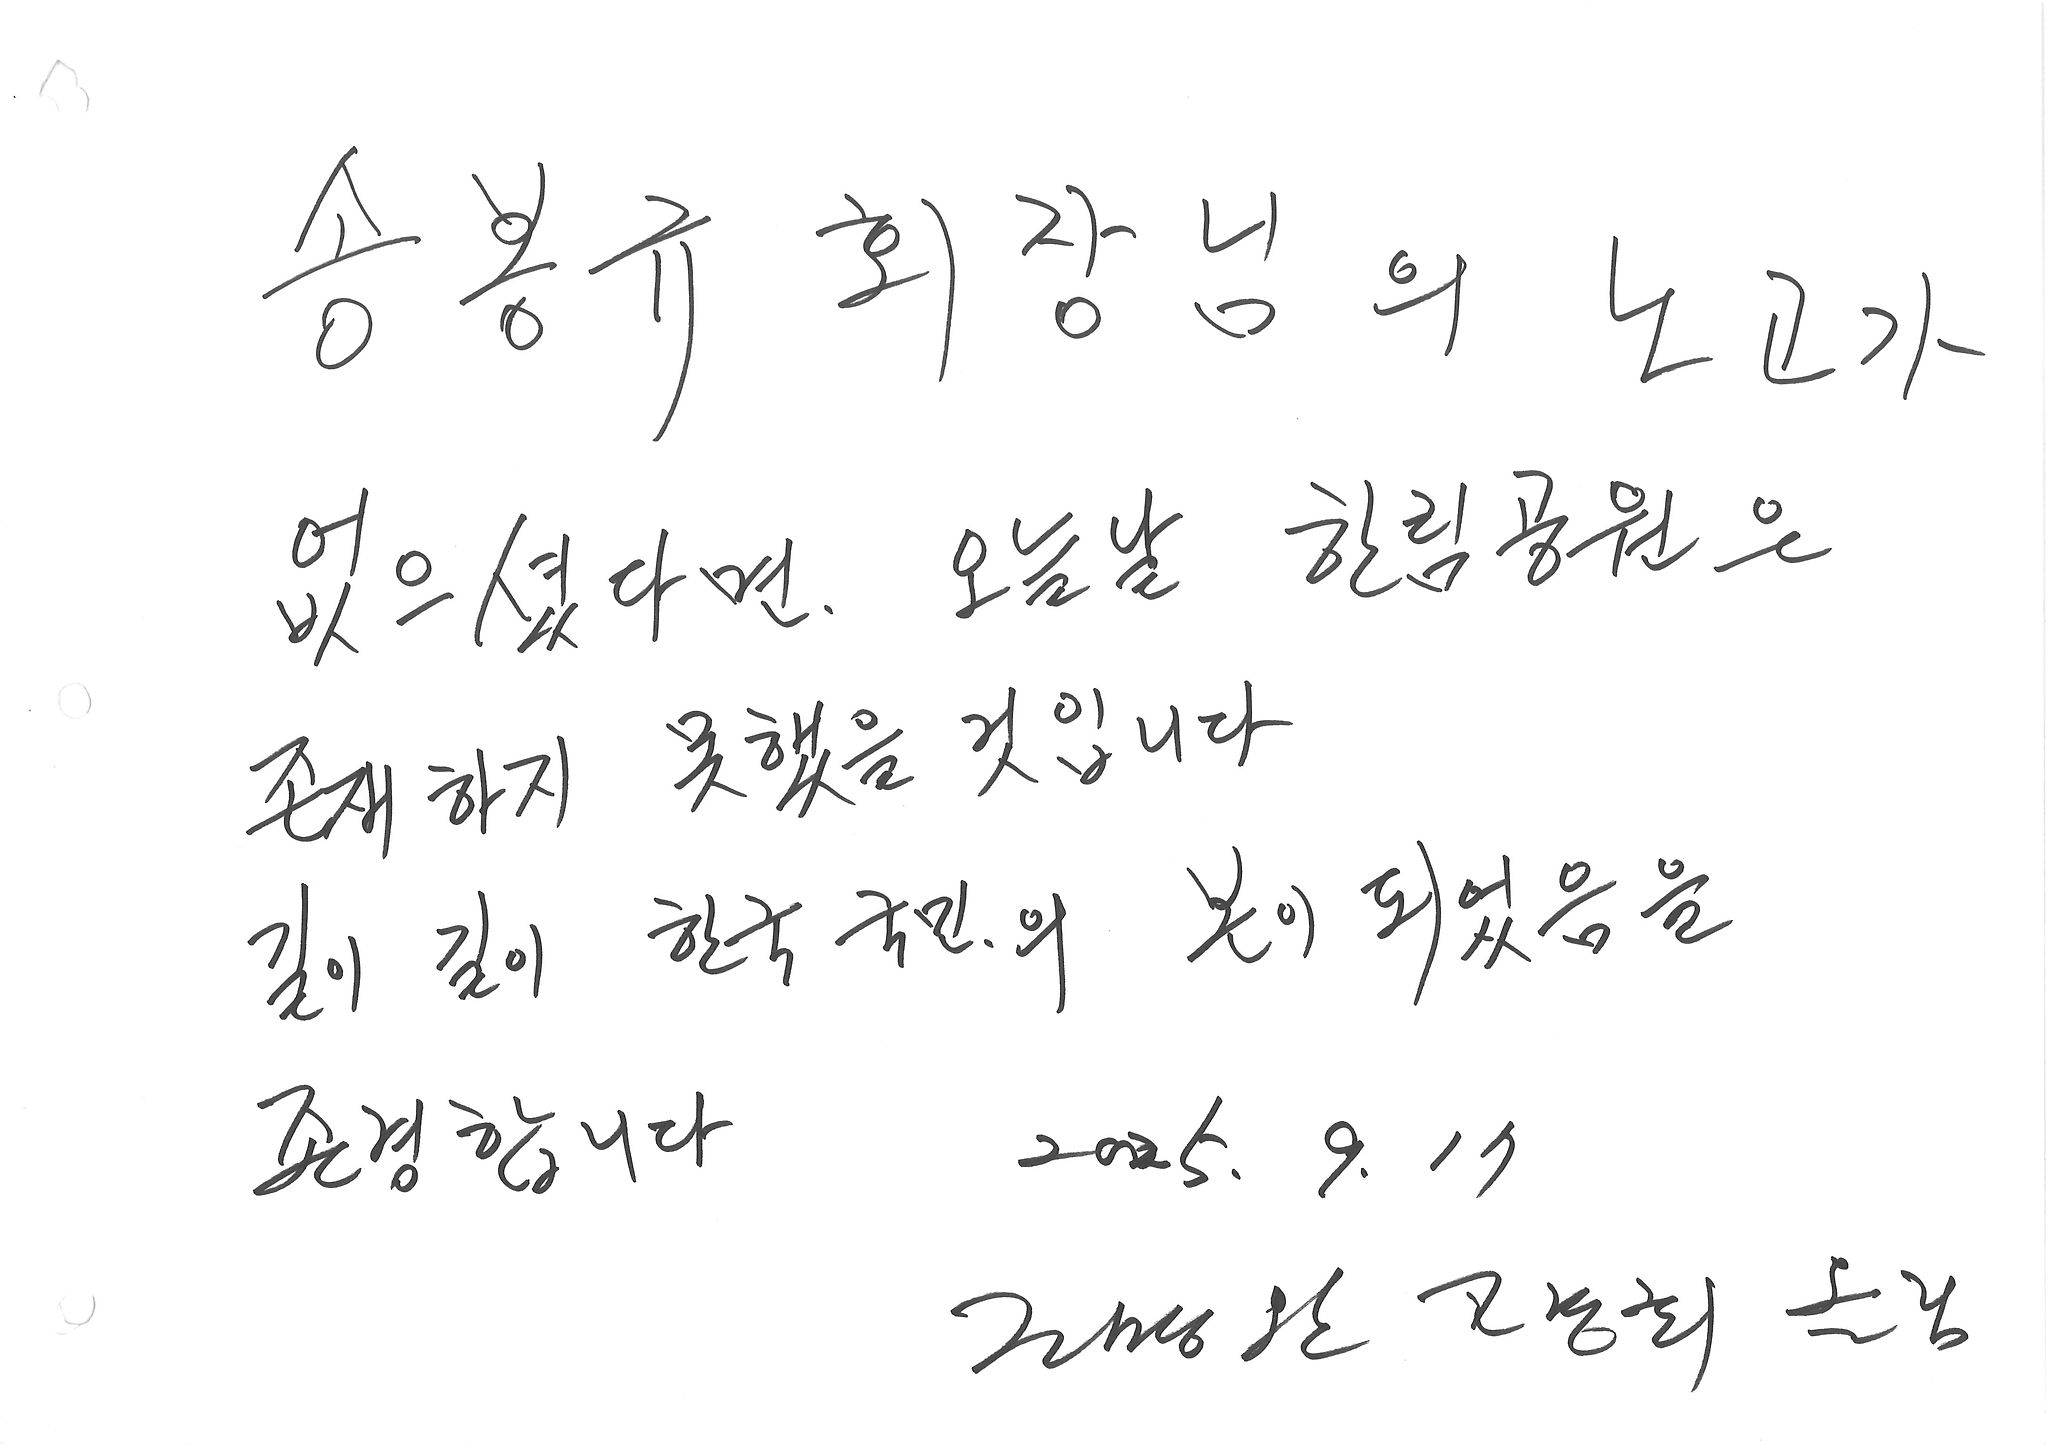 송봉규 회장님의 노고가
없으셨다면. 오늘날 한림공원은
존재하지 못했을 것입니다
길이 길이 한국 국민.의 본이 되었음을
존경합니다 2025. 9. 17
드림